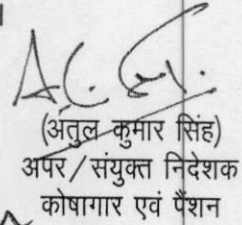 (अतुल कुमार सिंह)
अपर/संयुक्त निदेशक
कोषागार एवं पैंशन